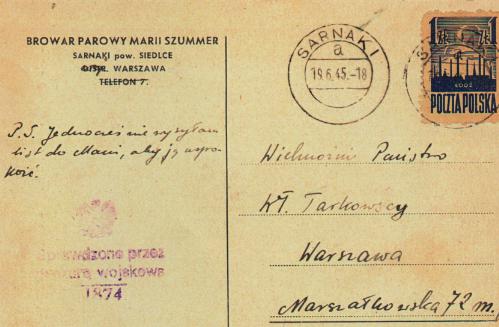 BROWAR PAROWY MARII SZUMMER
SARNAKI pow. SIEDLCE
DYSTR. WARSZAWA
TELEFON 7.
P.S. Jednocześnie wysyłam
list do Mani, aby ją uspo-
koić.
Sprawdzone przez
cenzurę wojskową
1874
SARNAKI
a
19.6.45.-18
1 ZŁ
1 ZŁ
ŁÓDŹ
POCZTA POLSKA
Wielmożni Państwo
Wł. Tarkowscy
Warszawa
Marszałkowska 72 m.